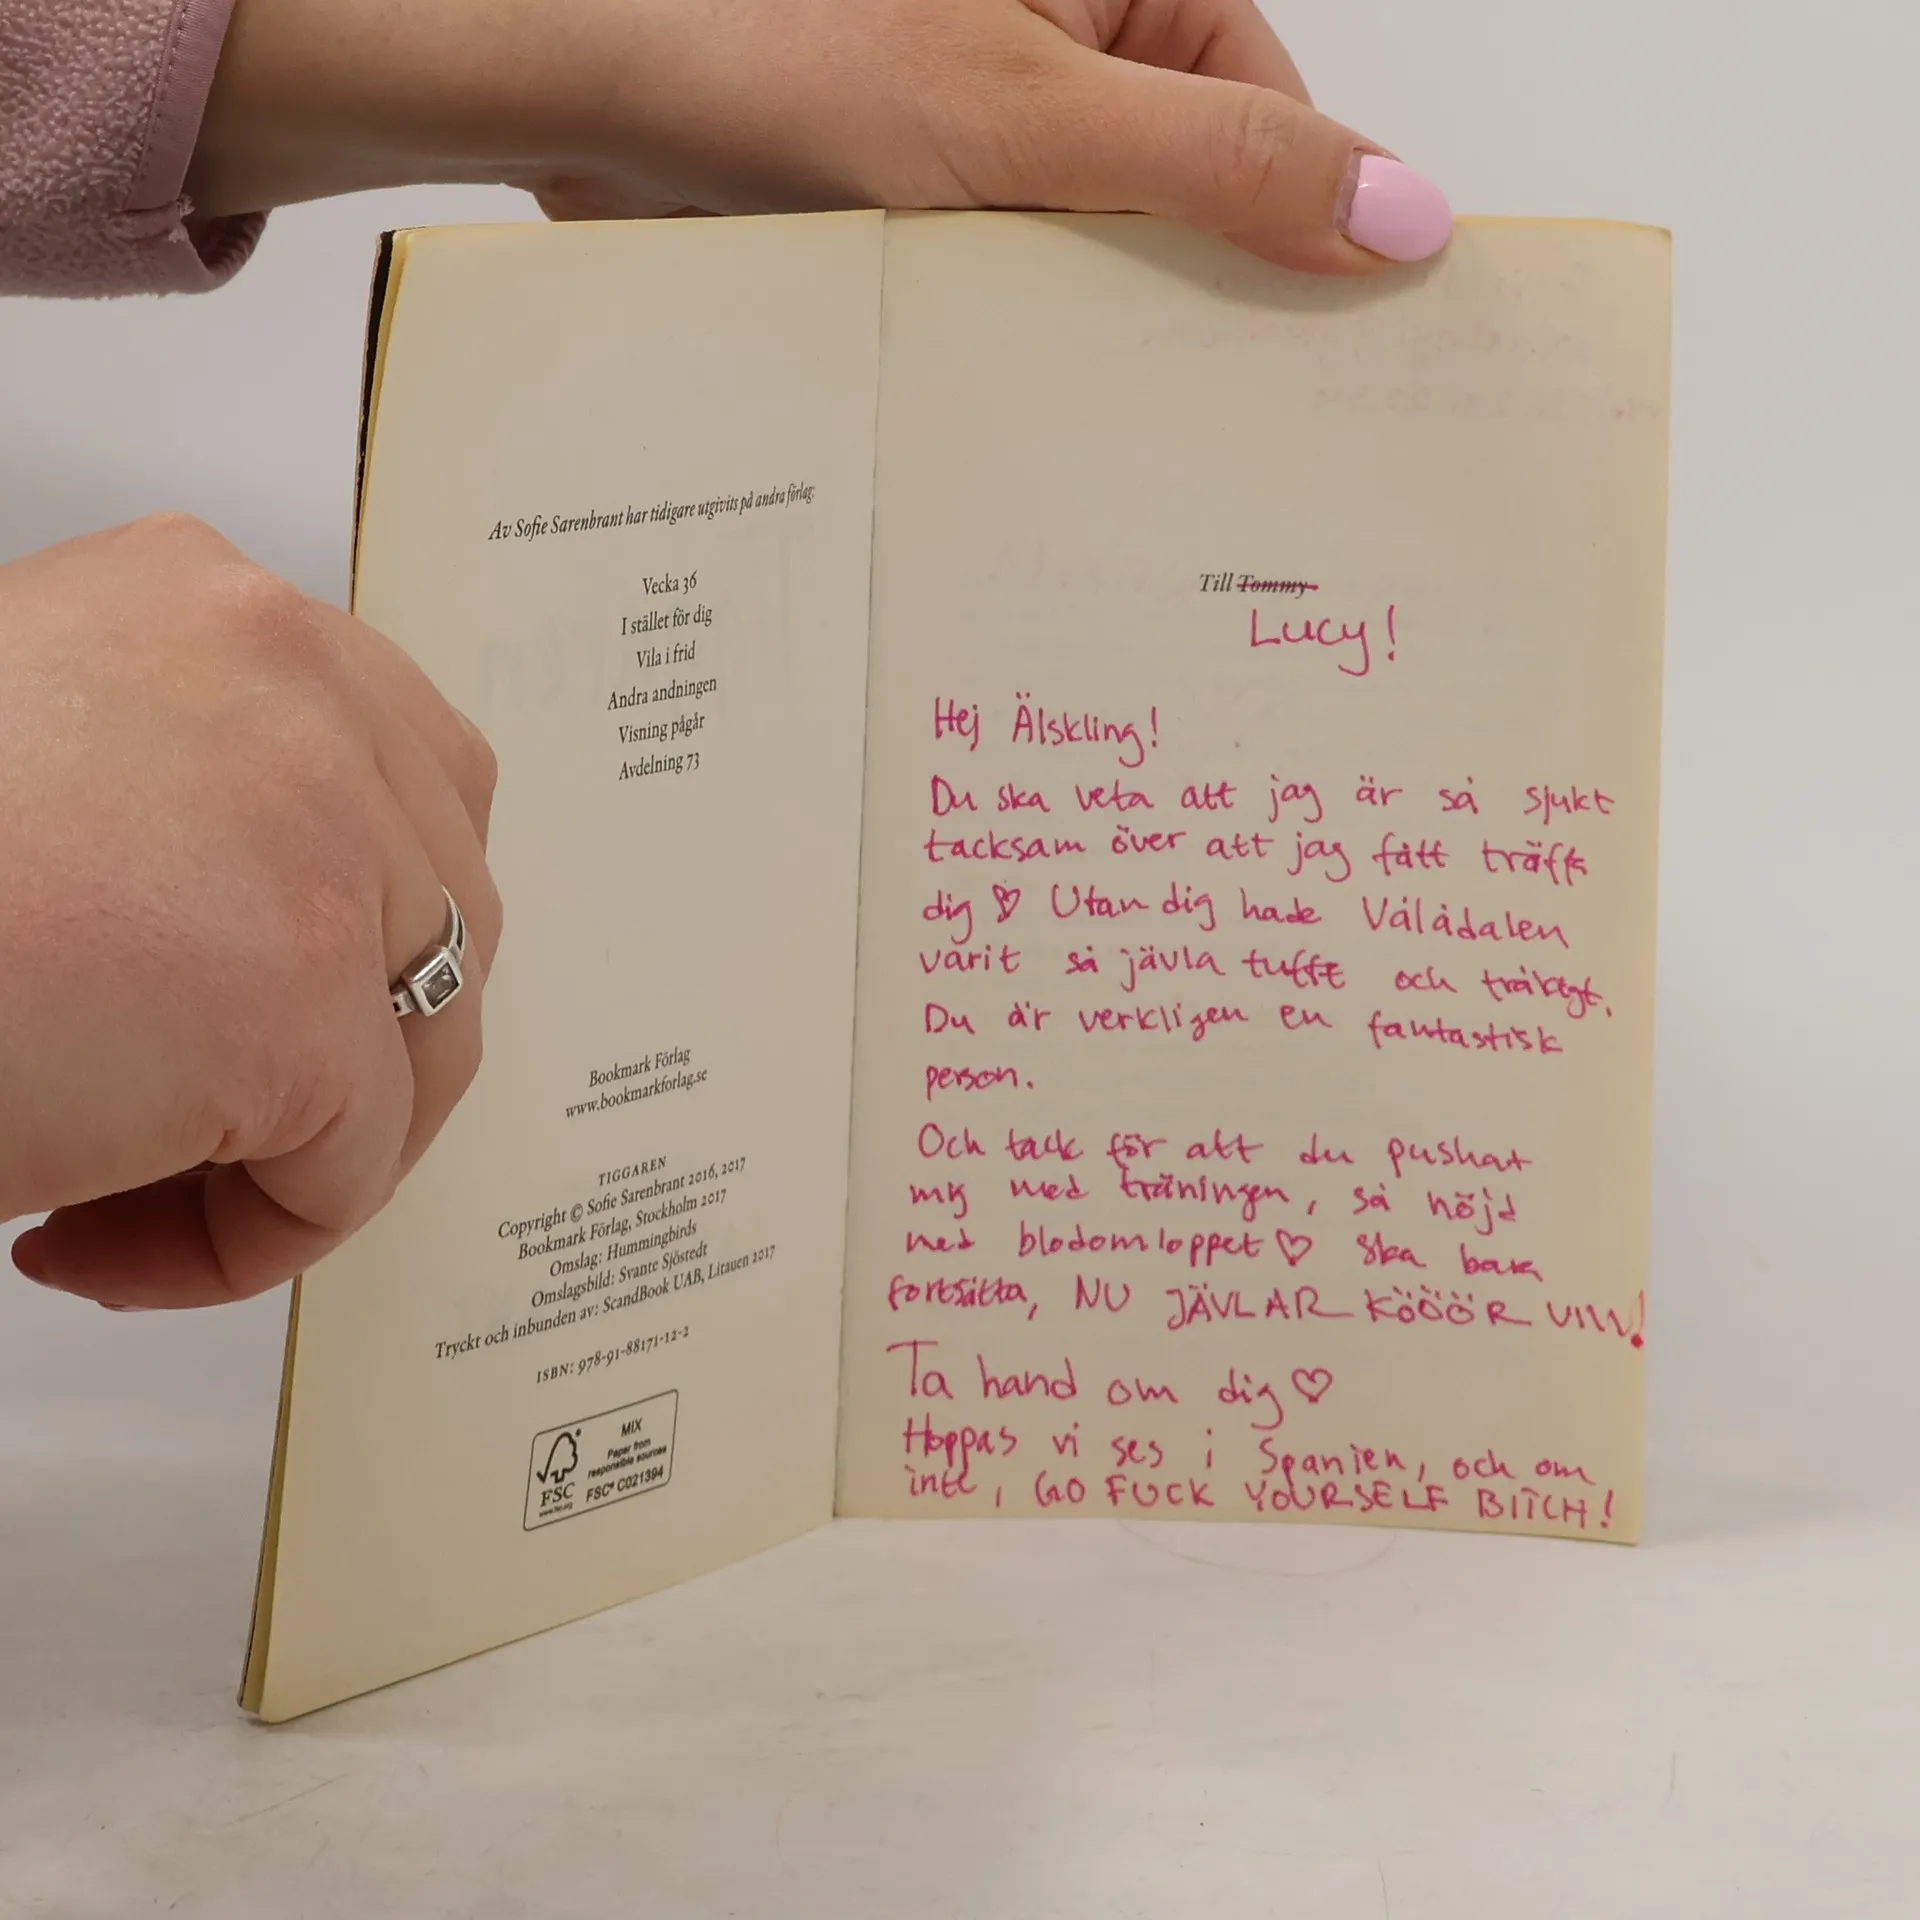 Av Sofie Sarenbrant har tidigare utgivits på andra förlag:
Vecka 36
I stället för dig
Vila i frid
Andra andningen
Visning pågår
Avdelning 73
Bookmark Förlag
www.bookmarkforlag.se
TIGGAREN
Copyright © Sofie Sarenbrant 2016, 2017
Bookmark Förlag, Stockholm 2017
Omslag: Hummingbirds
Omslagsbild: Svante Sjöstedt
Tryckt och inbunden av: ScandBook UAB, Litauen 2017
ISBN: 978-91-88171-12-2
MIX
Paper from
responsible sources
FSC
www.fsc.org
FSC® C021394
Till Tommy
Lucy!
Hej Älskling!
Du ska veta att jag är så sjukt
tacksam över att jag fått träffa
dig ♡ Utan dig hade Vålådalen
varit så jävla tufft och tråkigt.
Du är verkligen en fantastisk
person.
Och tack för att du pushat
mig med träningen, så nöjd
med blodomloppet ♡ Ska bara
fortsätta, NU JÄVLAR KÖÖÖR VI!
Ta hand om dig ♡
Hoppas vi ses i Spanien, och om
inte, GO FUCK YOURSELF BITCH!